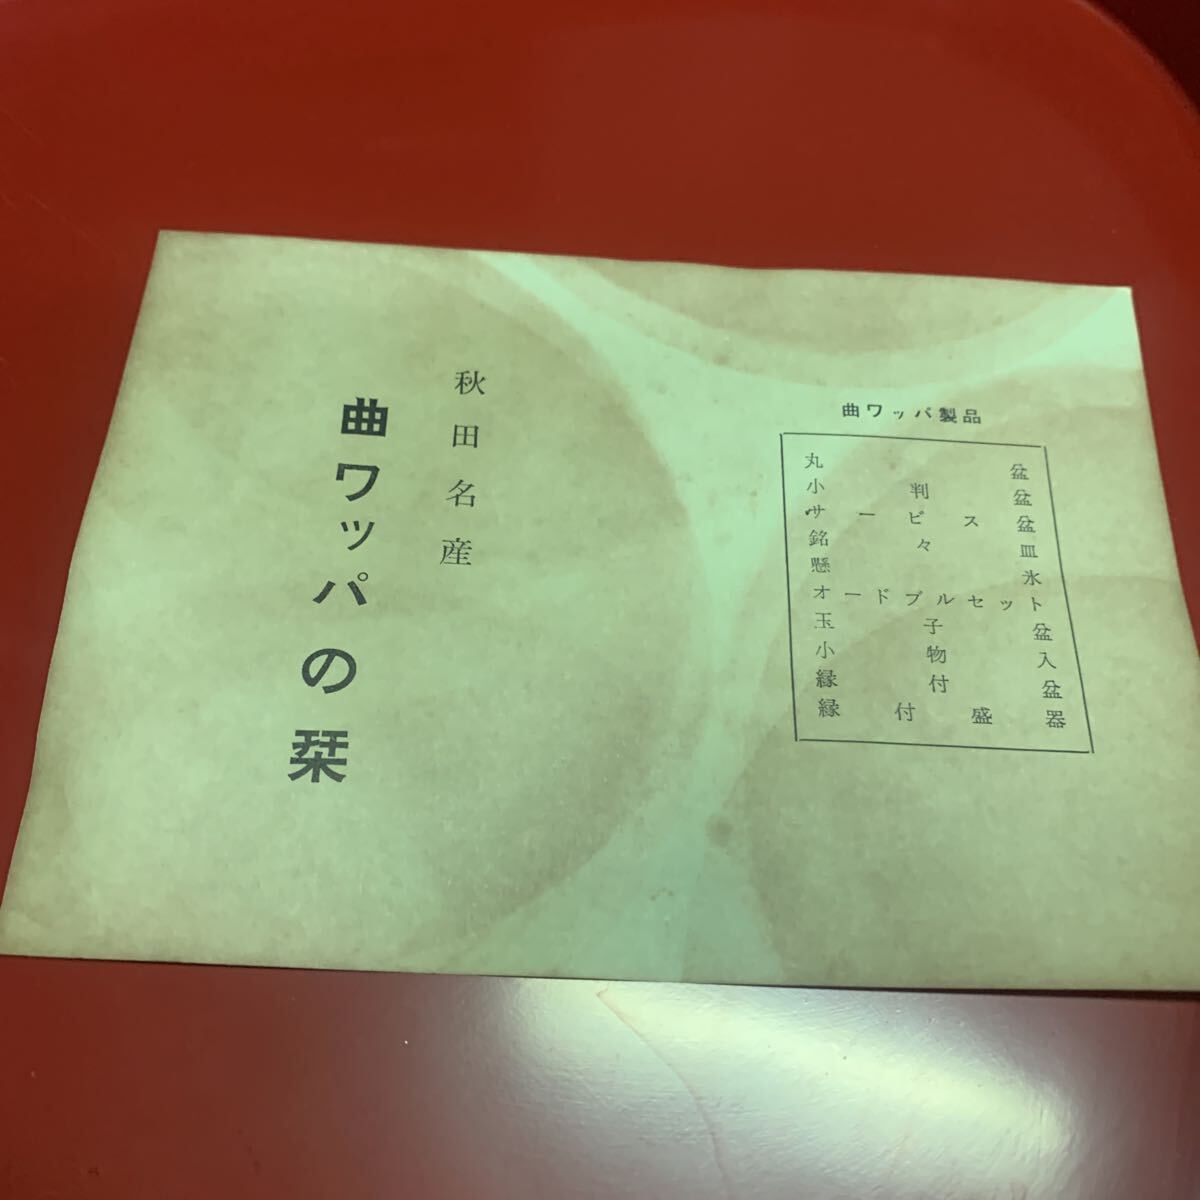 秋田名産
曲ワッパの栞
曲ワッパ製品
丸盆
小判盆
サービス盆
銘々皿
懸氷
オードブルセット
玉子盆
小物入
縁付盆
縁付盛器